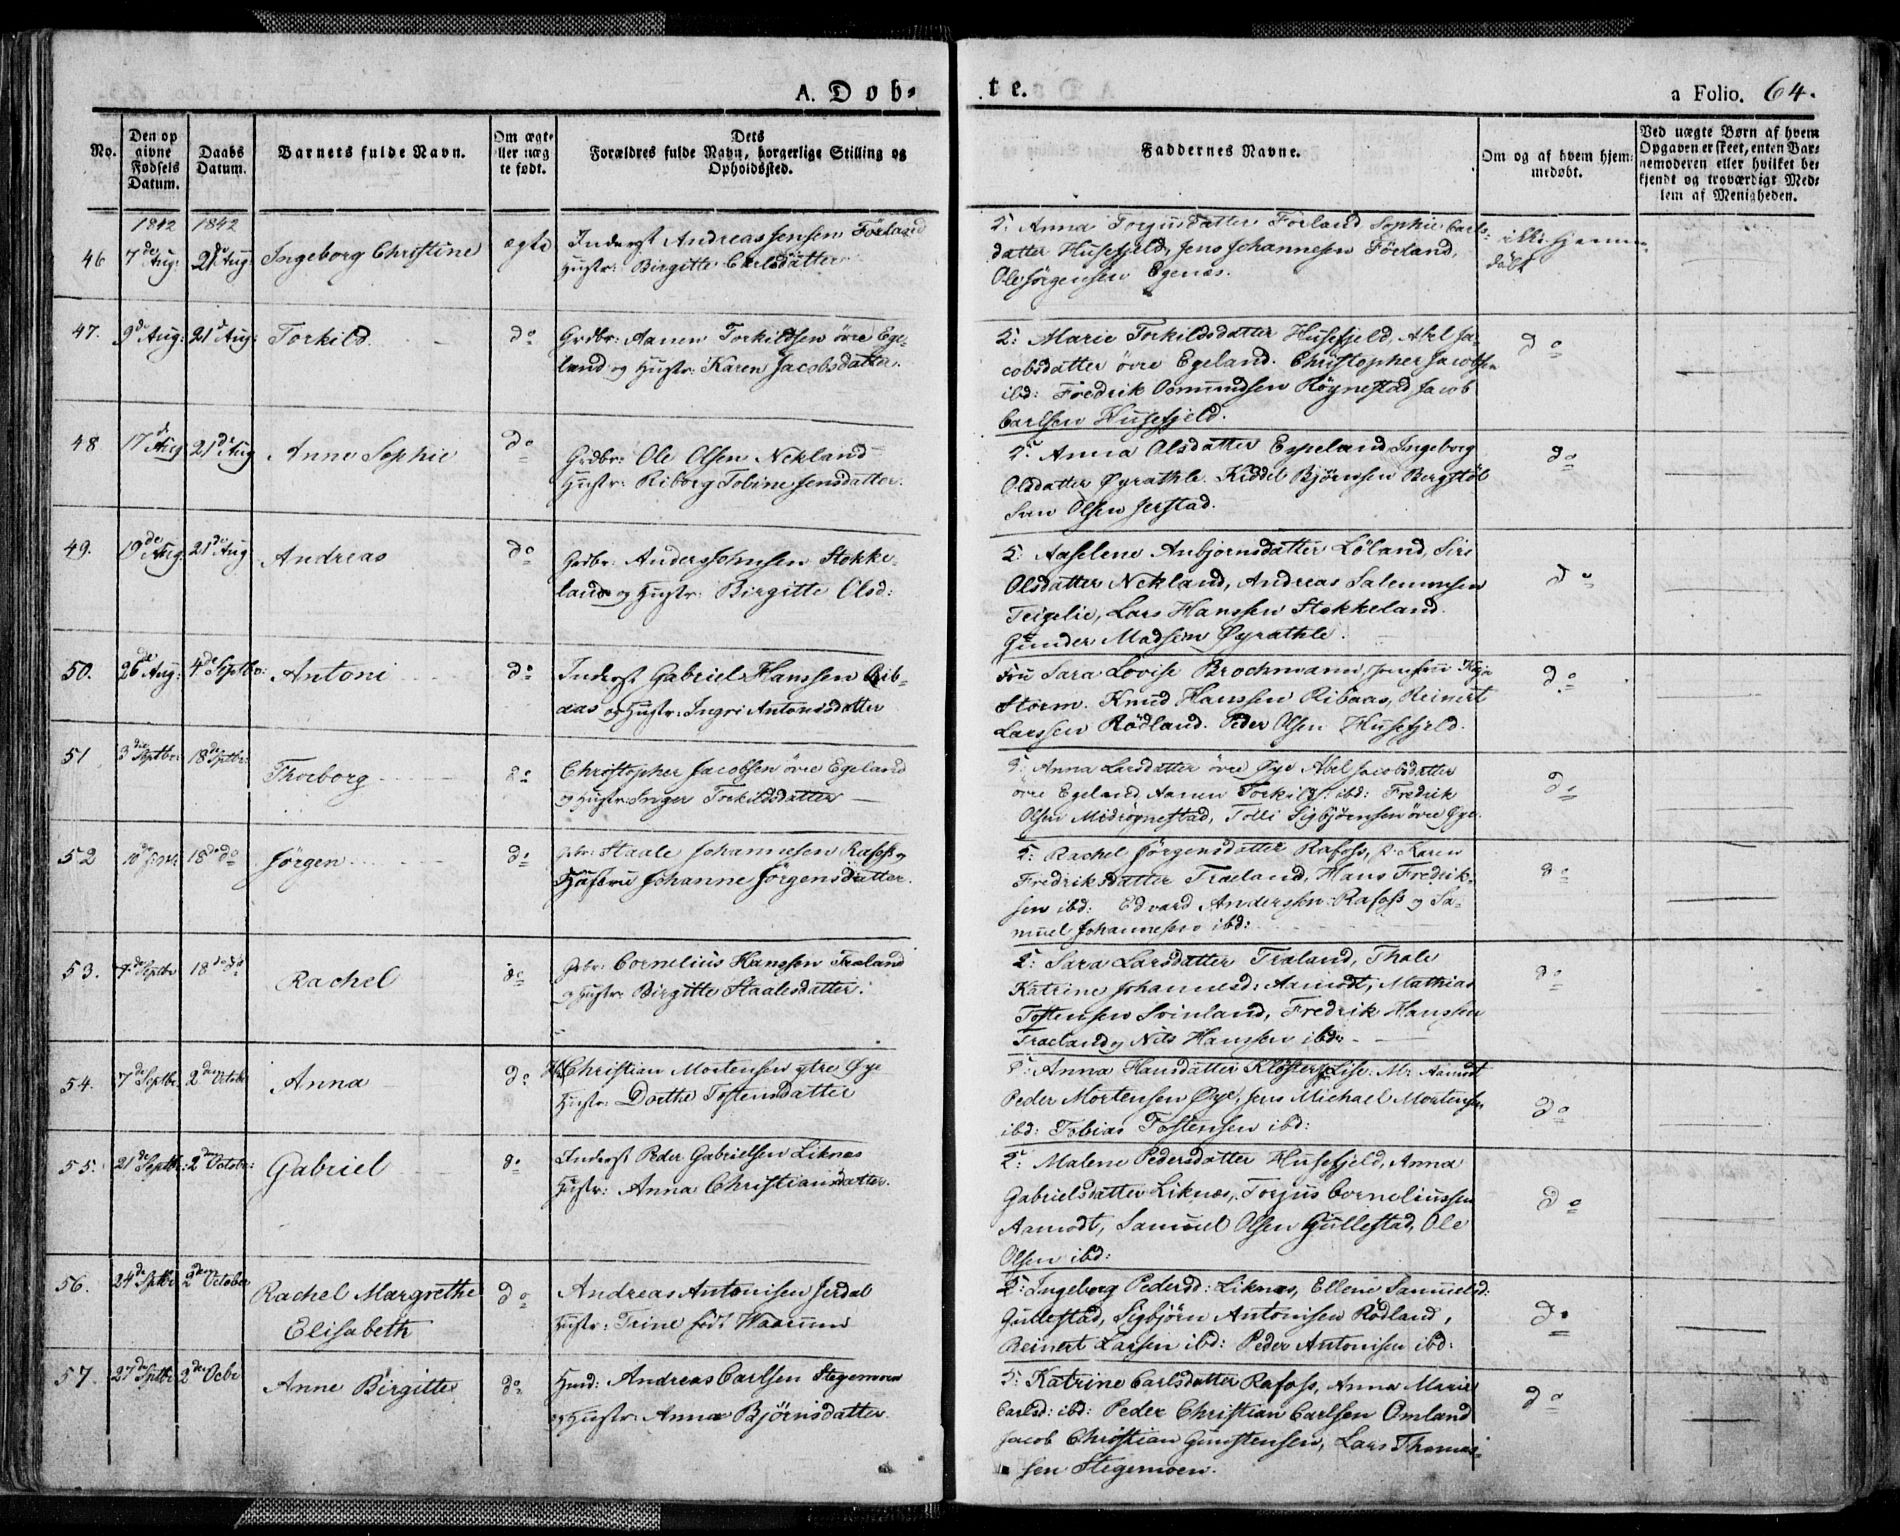 A. Døb-
te.
a Folio. 64.
No.
Den op
givne
Fødsels
Datum.
Daabs
Datum.
Barnets fulde Navn.
Om ægt-
eller uæg
te født.
Dets
Forældres fulde Navn, borgerlige Stilling og
Opholdssted.
Faddernes Navne.
Om og af hvem hjem-
medøbt.
Ved uægte Børn af hvem
Opgaven er skeet, enten Bar-
nemoderen eller hvilket be-
kjendt og troværdigt Med-
lem af Menigheden.
1842 1842
46 7de Aug: 21de Aug: Ingeborg Christine ægte
Inderst Andreas Jensen Förland
Hustr: Birgitte Carlsdatter
Anna Torjusdatter Förland Sophie Carls-
datter Husefjeld, Jens Johannesen Förland,
Ole Jörgensen Egenæs.
ikke hjemme-
döbt
47. 9de Aug: 21de Aug: Torkild do
Grdbr: Aanen Torkildsen övre Ege-
land og Hustr: Karen Jacobsdatter.
Marie Torkildsdatter Husefjeld, Abel Ja-
cobsdatter övre Egeland. Christopher Jacobsen
ibd: Fredrik Osmundsen Röynestad Jacob
Carlsen Husefjeld.
do
48 17de Aug 21de Aug Anne Sophie do
Grdbr: Ole Olsen Nekland
Hustr: Riborg Tobine Jensdatter.
Anna Olsdatter Espeland Ingeborg
Olsdatter Øyrathle. Kiddil Bjørnsen Bergstøl
Sven Olsen Jerstad.
do
49. 19de Aug. 21de Aug Andreas do
Grdbr: Anders Johnsen Stokke-
land og Hustr: Birgitte Olsd:
Aaselene Anbjørnsdatter Løland, Siri
Olsdatter Nekland, Andreas Salemonsen
Teigelie, Lars Hanssen Stokkeland.
Gunder Madsen Øyrathle.
do
50. 26de Aug: 4de Septbr: Antoni do
Inderst Gabriel Hanssen Rib-
aas og Hustr: Ingri Antonisdatter
Fru Sara Lovise Brochmann, Jomfru Kaja
Storm. Knud Hanssen Ribaas, Reinert
Larssen Rødland. Peder Olsen Husefjeld.
do
51 3die Septbr: 18de Septbr: Thorborg do
Christopher Jacobsen övre Egeland
og Hustr: Inger Torkildsdatter
Anna Larsdatter övre Øye Abel Jacobsdatter
övre Egeland Aanen Torkilds: ibd: Fredrik
Olsen Midröynestad, Tolli Sigbjörnsen övre Øye.
do
52 10de 18de do Jörgen do
Staale Johannesen Rafoss og
Hustrue Johanne Jörgensdatter.
Rachel Jörgensdatter Rafoss, Karen
Fredriksdatter Træland, Hans Fredrik-
sen ibd: Edvard Andersen Rafoss og Sa-
muel Johannesen ibd:
do
53. Septbr 18de do Rachel do
Cornelius Hanssen Træland
og Hustr: Birgitte Staalesdatter.
Sara Larsdatter Træland, Thale
Katrine Johannesd: Aamodt, Mathias
Tostensen Svinland, Fredrik Hanssen
Træland og Nils Hanssen ibd:
do
54. 7de Septbr. 2den Octobr Anna do
Christian Mortensen ytre Øye
Hustr: Dorthe Tostensdatter
Anna Hansdatter Kloster, Lise Mr. Aamodt
Peder Mortensen Øye, Jens Michael Mortensen
ibd: Tobias Tostensen ibd:
do
55. 21de Septbr: 2den Octobr: Gabriel do
Inderst Peder Gabrielsen Liknæs
Hustr: Anna Christiansdatter.
Malene Pedersdatter Husefjeld, Anna
Gabrielsdatter Liknæs, Torjus Corneliussen
Aamodt, Samuel Olsen Gullestad, Ole
Olsen ibd:
do
56. 24de Septbr 2den October Rachel Margrethe
Elisabeth do
Andreas Antonisen Jerdal
Hustr: Trine født Waarum
Ingeborg Pedersd: Liknæs, Ellene Samuelsd:
Gullestad, Sigbjörn Antonisen Rödland,
Reinert Larsen ibd: Peder Antonisen ibd:
do
57. 27de Septbr 2den Octbr Anne Birgitte do
Andreas Carlsen Stegemoen
og Hustr: Anna Bjørnsdatter.
Katrine Carlsdatter Rafoss, Anna Marie
Carlsd: ibd: Peder Christian Carlsen Omland
Jacob Christian Gunstensen, Lars Thomas-
sen Stegemoen.
do